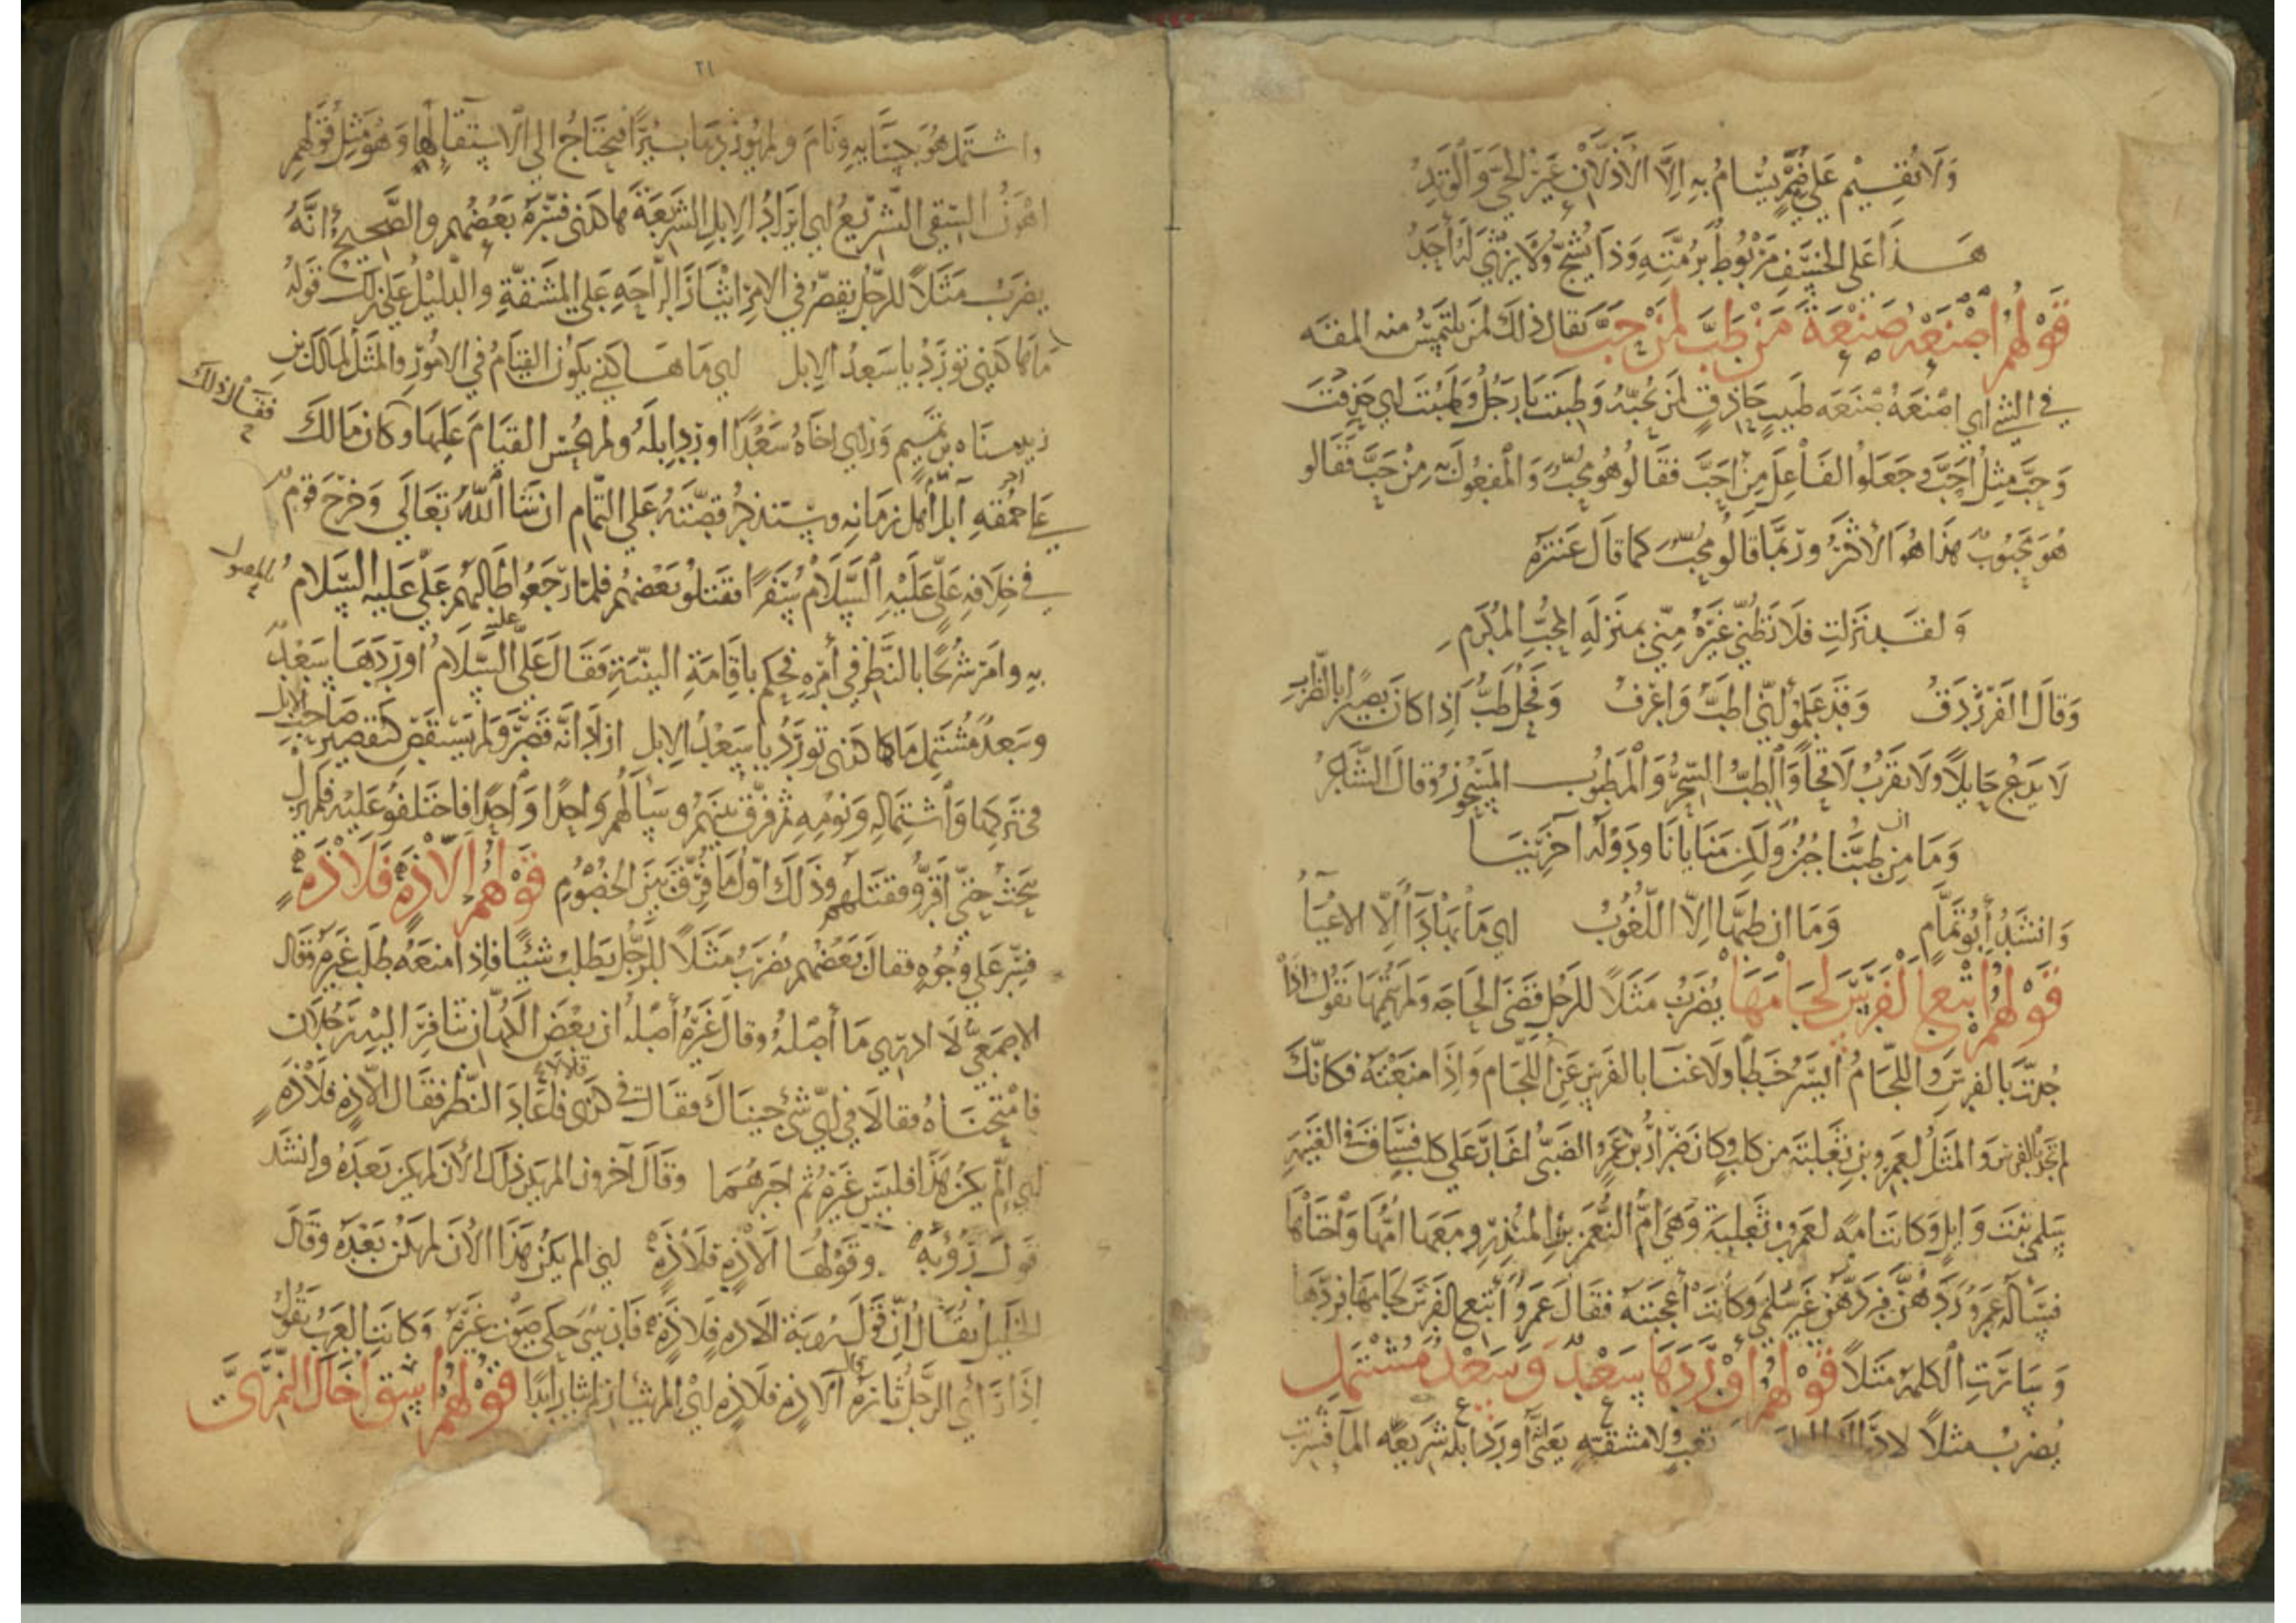 وَلَا يُقِيمُ عَلى ضَيْمٍ يُسَامُ بِهِ اِلَّا الْاَذَلَّانِ عَيْرُ الْحَيِّ وَالْوَتِدُ
هَذَا عَلى الْخَسْفِ مَرْبُوطٌ بِرُمَّتِهِ وَذَا يُشَجُّ وَلَا يَرْثِي لَهُ أَحَدُ
قَوْلهُمْ اصْنَعْهُ صَنْعَةَ مَنْ طَبَّ لِمَنْ حَبَّ يقال ذلك لمن يلتمس منه
في الشي اي اصْنَعْهُ صَنْعَة طَبيبٍ حَاذِقٍ لِمَنْ يُحبّهُ وَطبَبْتَ يَا رَجُلُ اي حَذِقْتَ
وَحَبَّ مِثْلُ أَحَبَّ وَجَعَلُوا الْفَاعِلَ مِنْ أَحَبَّ فَقَالُوا هُوَ مُحِبٌّ وَالْمَفْعُول مِنْ حَبَّ فَقَالُو
هُوَ مَحْبُوبٌ هَذَا هُوَ الْأَكْثَرُ وَرُبَّمَا قَالُو مُحَبٌّ كما قَالَ عَنْتَرَه
وَلَقَد نَزَلْتِ فَلَا تَظُنِّي غَيْرَهُ مِنِّي بِمَنْزِلَةِ الْمُحَبِّ الْمُكْرَمِ
وَقَالَ الْفَرَزْدَقُ وَقَدْ عَلِمُو انّي اَطَبُّ وَاعْرَفُ وَفَحْلٌ طَبٌّ اِذَا كَانَ بَصِيرًا بِالضِّرَابِ
لَا يَدَعُ حَايلًا وَلَا يَقْرُبُ لَاقحًا وَالطِّبُّ السِّحْرُ وَالْمَطْبُوب المَسْحُورُ وَقَالَ الشَّاعِرُ
وَمَا اِنْ طِبُّنَا جُبْنٌ وَلَكِنْ مَنَايَانَا وَدَوْلَةُ آخَرِينَا
وَانْشَدَ أَبُو تَمَّامٍ وَمَا ان طِبُّهَا اِلَّا اللُّغُوبُ اي مَا دَآؤُهَا اِلَّا الاِعْيَآءُ
قَوْلهُمْ اتْبِعِ الْفَرَسَ لِجَامَهَا يُضْرَبُ مَثَلًا للرَّجُلِ قَضَى الْحَاجَةَ وَلَمْ يُتِمَّهَا يَقُولُ اذَا
جُدْتَ بالفرَسِ وَاللِّجَامُ اَيْسَرُ خَطْبًا وَلَا غِنَا بِالفَرَسِ عَنِ اللِّجَامِ وَاِذَا مَنَعْتَهُ فَكَأَنَّكَ
لم تَجُدْ بالفَرَسِ وَالمَثَلُ لِعَمْرِو بنِ ثَعْلَبَة من كَلبٍ وَكَانَ ضِرَارُ بْنُ عَمْرٍو الضَّبّيُّ اَغَارَ عَلى كلبٍ فَسَاقَ في الغَنِيمَةِ
سَلْمَى بِنْتَ وَايلٍ وَكَانَتْ امَةً لِعَمْرِو بْنِ ثَعْلَبَةَ وَهيَ اُمُّ النُّعْمَن بْنِ المُنْذِرِ وَمَعَهَا امّها وَاخْتَاهَا
فَسَأَلَهُ عَمْرٌو رَدَّهُنَّ فَرَدَّهُنَّ غَيْرَ سَلْمَى وَكَانَتْ اَعْجَبَتْهُ فَقَالَ عَمْرٌو اَتْبِعِ الْفَرَسَ لِجَامَهَا فَرَدَّهَا
وَسَارَتِ الْكَلِمَةُ مَثَلًا قَوْلهُمْ اَوْرَدَهَا سَعْدٌ وَسَعْدٌ مُشْتَمِل
يُضرَبُ مثلاً لادراك تَعبٍ وَلا مَشَقَّةٍ يَعْنى أنّه أَوْرَدَ ابِلَهُ شَرِيعَة المآ فشربت
٢١
وَاشتَمَلَ هُوَ بِكِسَايِهِ وَنَامَ وَلم يُورِدْهَا بِيرًا فَيَحْتَاجُ الى الِاسْتِقَآءِ لَهَا وَهُوَ مِثْل قَوْلِهِمْ
اهْوَنُ السَّقيِ التَّشْرِيعُ اي ايرَادُ الابِلِ الشّريعَةَ هاكَذَى فَسَّرَهُ بَعْضُهُم وَالصَّحِيحُ انَّهُ
يُضرَبُ مَثَلًا للرّجُل يقصِّرُ في الامْرِ ايثَارًا للرَّاحَةِ عَلى المَشَقَّةِ وَالدَّليْلُ عَلى ذلك قَوْلُهُ
مَا هاكَذَى تُورَدُ يَا سَعْدُ الابِل اي مَا هَاكَذَى يكون القِيَامُ في الامُورِ وَالمَثَلُ لِمَالكِ بْنِ
زيد مناه بن تميم وَرَاى اخَاهُ سَعْدًا اوردَ اِبِلَهُ ولم يُحْسِنِ القيَامَ عَلَيهَا وكان مَالك
فَقَالَ ذلك
عَلى حُمْقِهِ آبَلَ أَهْلِ زَمَانِه وَسَنَذْكُرُ قصَّتَهُ عَلى التَّمَامِ ان شَا اللهُ تَعَالَى وَخَرَجَ قَومٌ
في خِلَافَةِ عَلىّ عَلَيْهِ السَّلَامُ سَفَرًا فقَتَلُو بَعْضَهُم فَلمَّا رَجَعُوا طَالَبَهُم عَلىّ عَلَيهِ السَّلَامُ
بِهِ وَامَرَ شُرَيْحًا بِالنَّظَرِ في أَمْرِهِ فَحَكَم بِاقَامَةِ البَيِّنَةِ فَقَالَ عَلىٌّ عليه السَّلَامُ اَوْرَدَهَا سَعْدٌ
وَسَعْدٌ مُشْتَمِل مَا هاكَذَى تُورَدُ يَا سَعْدُ الابِل ارَادَ انَّهُ قَصَّرَ وَلَمْ يَسْتَقْصِ كَتَقْصِيرِ صَاحِبِ الابل
في تَركِهَا وَاشْتِمَالِهِ وَنَوْمِهِ ثم فَرَّقَ بَيْنَهُم وَسَأَلَهُم وَاحِدًا وَاحِدًا فَاخْتَلَفُو عَلَيْهِ فَلم يَزَل
يَبْحَثُ حَتّى أَقَرُّو فَقَتَلَهُم وَذَلكَ اوّل مَا فُرِّقَ بَيْنَ الخُصُومِ قَوْلهُمْ الَّادَهٍ فَلَادَهٍ
فُسِّرَ عَلى وُجُوهٍ فَقَالَ بَعْضُهُم يُضْرَبُ مَثَلًا للرَّجُل يَطْلبُ شَيْئًا فَاِذا مُنعَهُ طَلَبَ غَيْرَهُ وَقَالَ
الاصْمَعِىُّ لَا ادْرِي مَا أَصْلُهُ وَقَالَ غَيْرُهُ أَصْلُهُ انَّ بَعْضَ الْكُهَّانِ تَنَافَرَ الَيْهِ رَجُلَانِ
فَامْتَحَنَاهُ فَقَالَا فِي ايّ شَيْءٍ جِيْنَاكَ فَقَالَ في كَذَى فَأَعَادَ النَّظَرَ فقَالَ الّادَهٍ فَلَادَهٍ
اي اِلَّم يَكُنْ هَذَا فَلَيْسَ غَيْرُهُ ثم اخبَرَهُمَا وَقَالَ آخَرُون الم يكن ذلك الآن لم يكن بَعْدَهُ وَانشَدَ
قَولَ رُؤْبَةَ وَقَوْلُهَا الَّادَهٍ فَلَادَهٍ اي الم يَكُنْ هَذَا الآنَ لم يَكُنْ بَعْدَهُ وَقَالَ
الخَلِيلُ يُقَالُ انَّ قَوْلَ رُوبَةَ الَّادَهٍ فَلَادَهٍ فَارسيٌ حَكى صَوْتَ غَيْرِهِ وَكَانَتِ العَرَبُ تَقُولُ
اِذَا رَأَى الرَّجُلُ ثَارَهُ الّادَهٍ فَلَادَهٍ اي الم يثأر لم يثأر ابَدًا قَوْلهُمْ اسْقِ اخَاكَ النَّمَرِىَّ